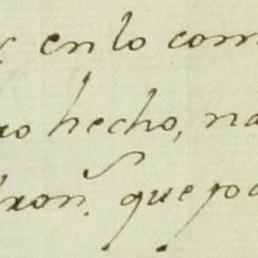 en lo com
ro hecho, na
xon. que po